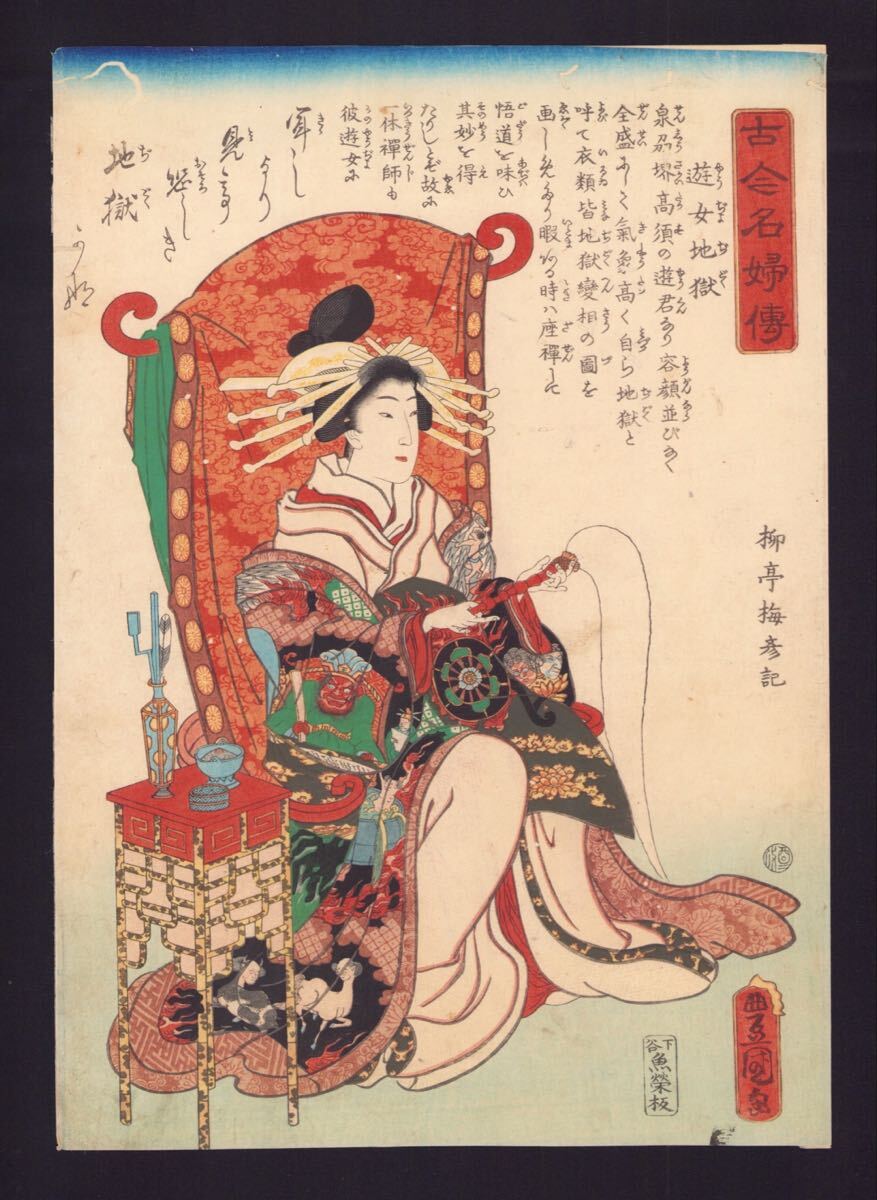 古今名婦傳
遊女地獄
泉州堺高須の遊君なり容顔並びなく
全盛にして氣象高く自ら地獄と
呼て衣類皆地獄變相の圖を
画しめたり暇ある時ハ座禪して
悟道を味ひ
其妙を得
たりしとぞ故に
一休禪師も
彼遊女に
聞しより
見て
恐しき
地獄かな
柳亭梅彦記
豊国画
下谷
魚榮板